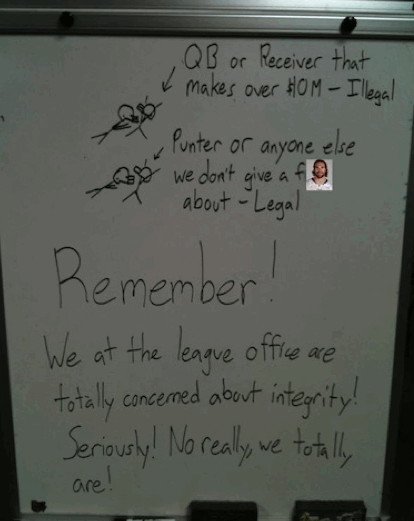 QB or Receiver that
makes over $10M - Illegal
Punter or anyone else
we don't give a f
about - Legal
Remember!
We at the league office are
totally concerned about integrity!
Seriously! No really, we totally
are!